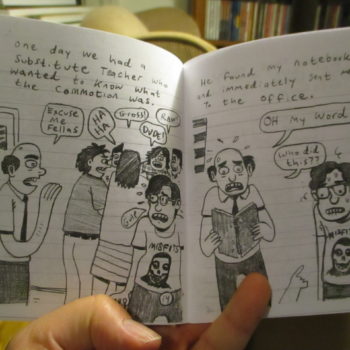 one day we had a
Substitute Teacher who
wanted to know what
the commotion was.
Excuse
me
Fellas
HA
HA
Gross!
DUDE!
RAW!
GULP
MISFITS
He found my notebook
and immediately sent me
to the office.
OH MY WORD
Who did
this??
MISFITS